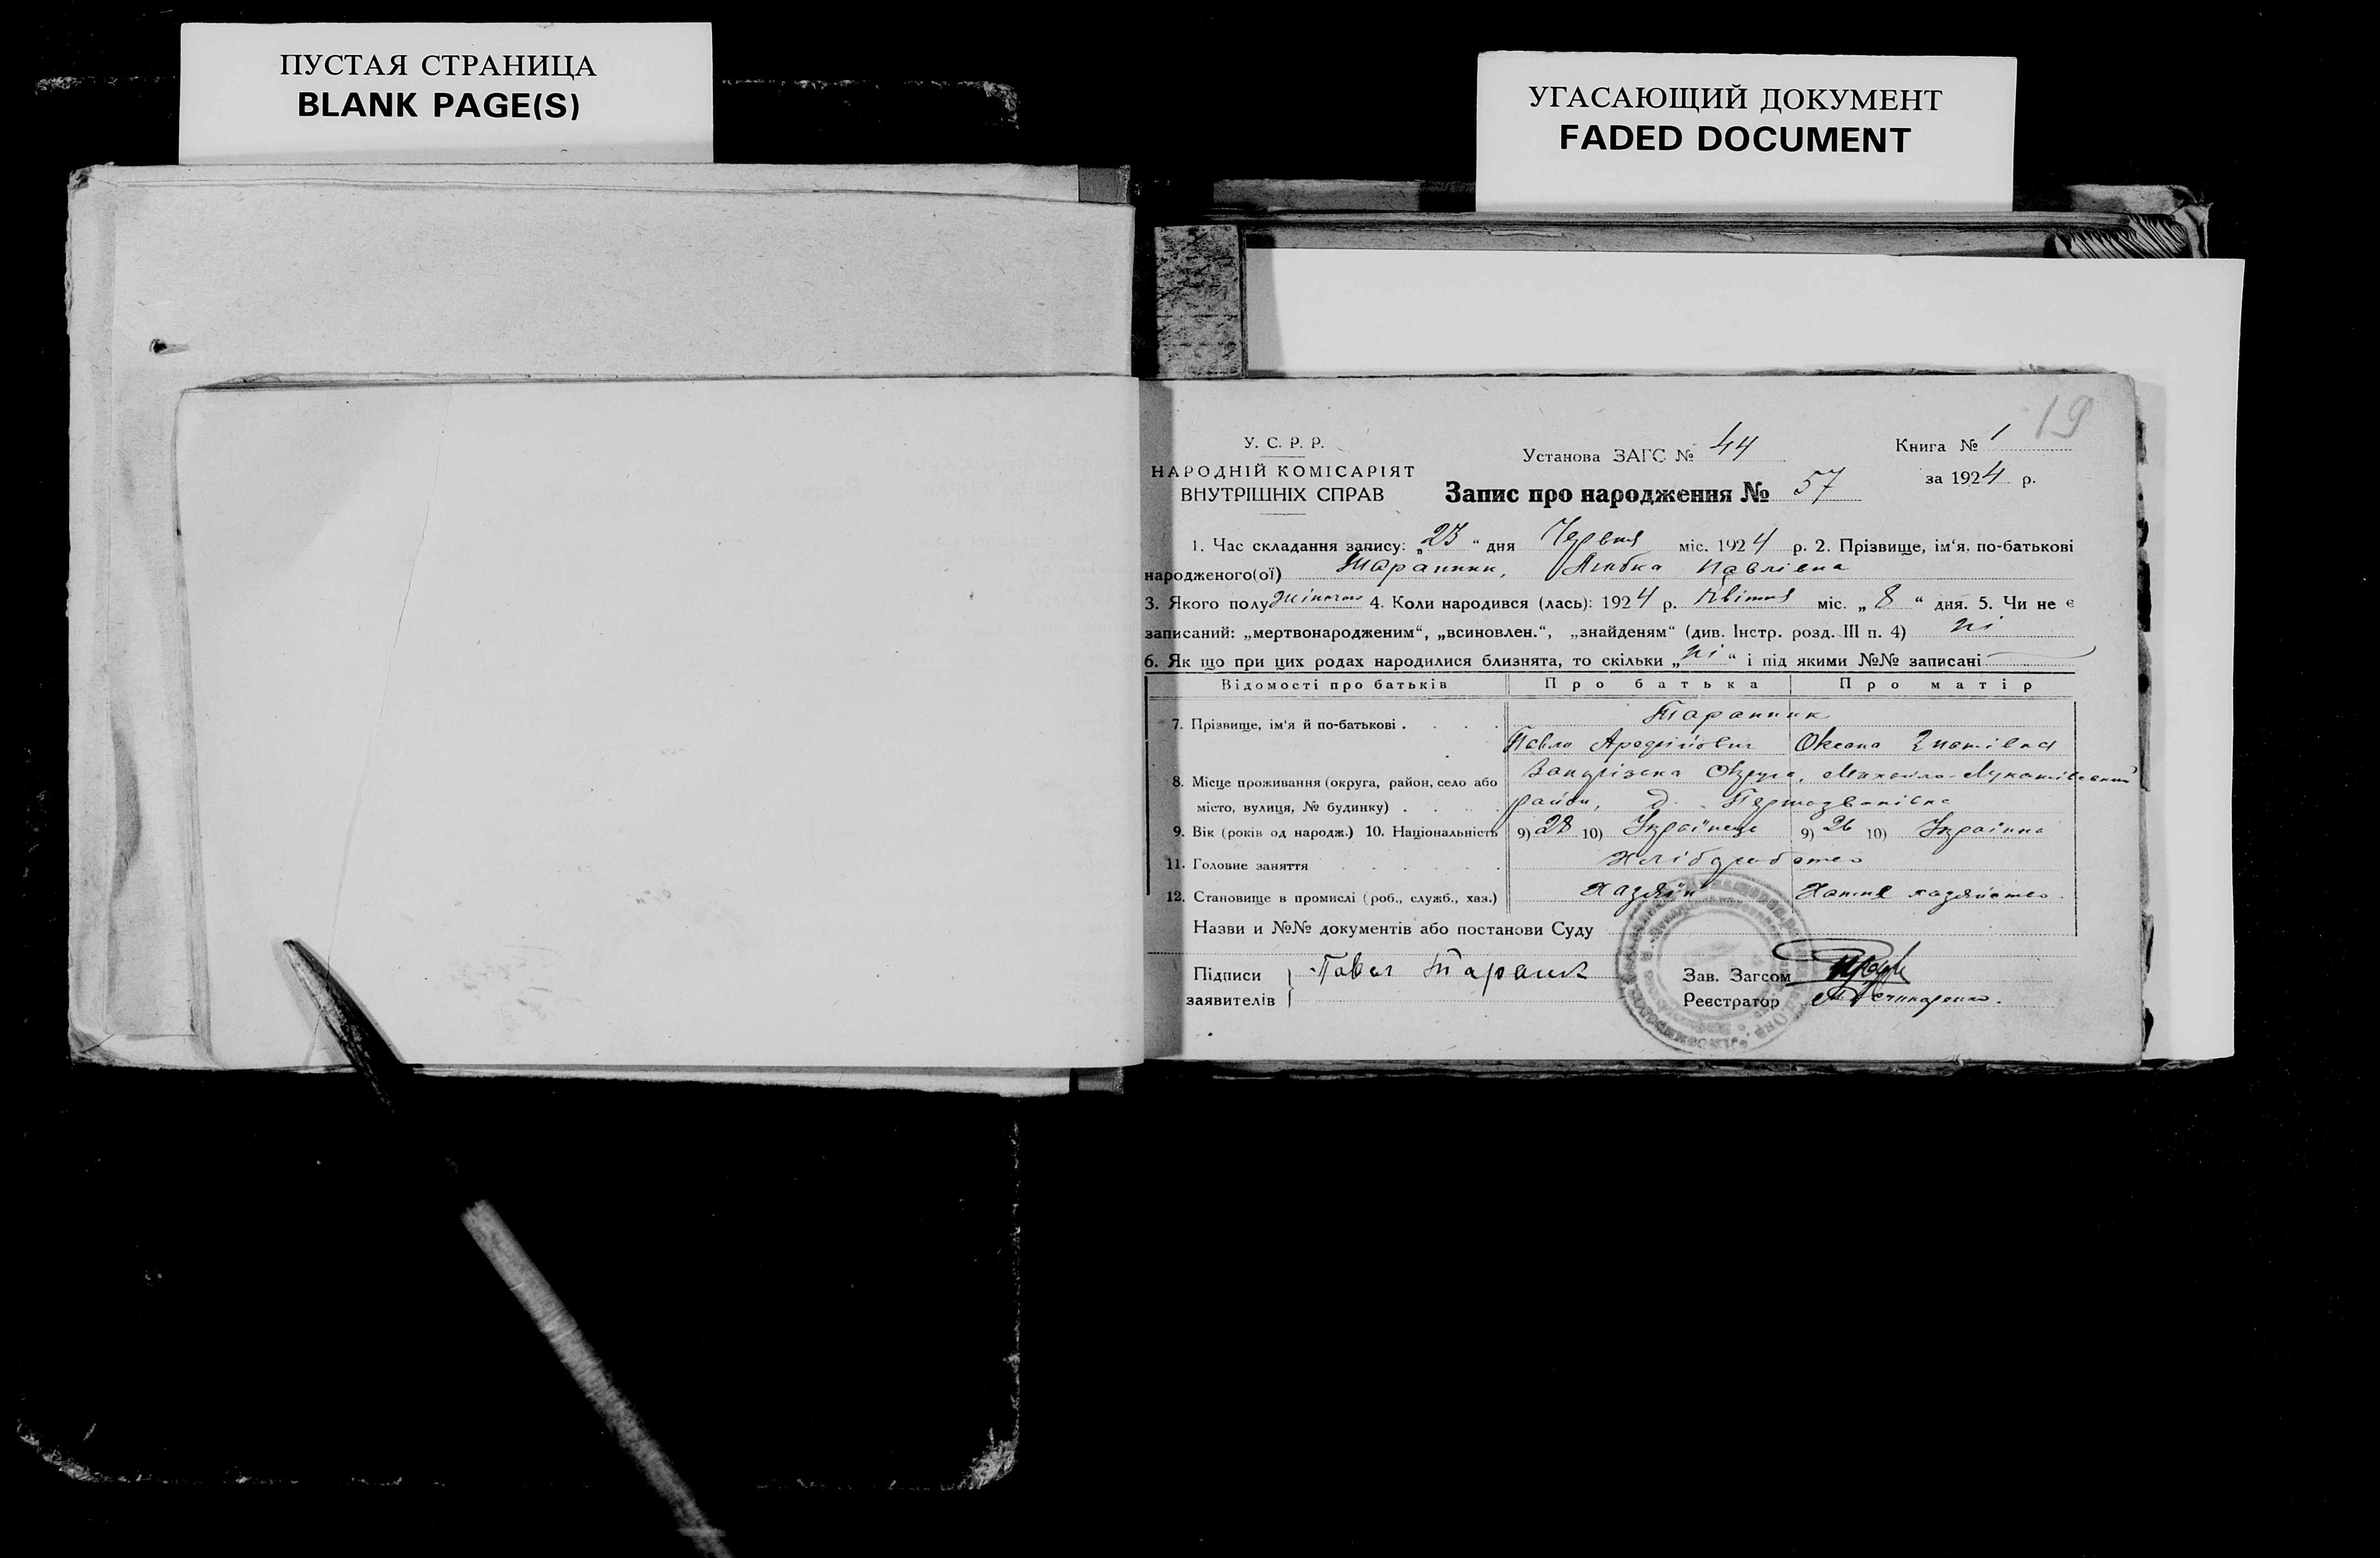 ПУСТАЯ СТРАНИЦА
BLANK PAGE(S)
УГАСАЮЩИЙ ДОКУМЕНТ
FADED DOCUMENT
19
У. С. Р. Р.
НАРОДНІЙ КОМІСАРІЯТ
ВНУТРІШНІХ СПРАВ
Установа ЗАГС № 44
Книга № 1
за 1924 р.
Запис про народження № 57
1. Час складання запису: „23“ дня Червня міс. 1924 р. 2. Прізвище, ім‘я, по-батькові
народженого(ої) Павлівна
3. Якого полу 4. Коли народився (лась): 1924 р. Квітня міс. „8“ дня. 5. Чи не є
записаний: „мертвонародженим“, „всиновлен.“, „знайденям“ (див. Інстр. розд. III п. 4) ні
6. Як що при цих родах народилися близнята, то скільки „ні“ і під якими №№ записані
Відомості про батьків Про батька Про матір
7. Прізвище, ім‘я й по-батькові .
Павло Оксана
8. Місце проживання (округа, район, село або Округа,
місто, вулиця, № будинку) . район,
9. Вік (років од народж.) 10. Національність 9) 28 10) Українець 9) 26 10) Українка
11. Головне заняття Хліборобство
12. Становище в промислі (роб., служб., хаз.) Хазяїн Хатнє
Назви и №№ документів або постанови Суду
Підписи
заявителів
Зав. Загсом
Реєстратор